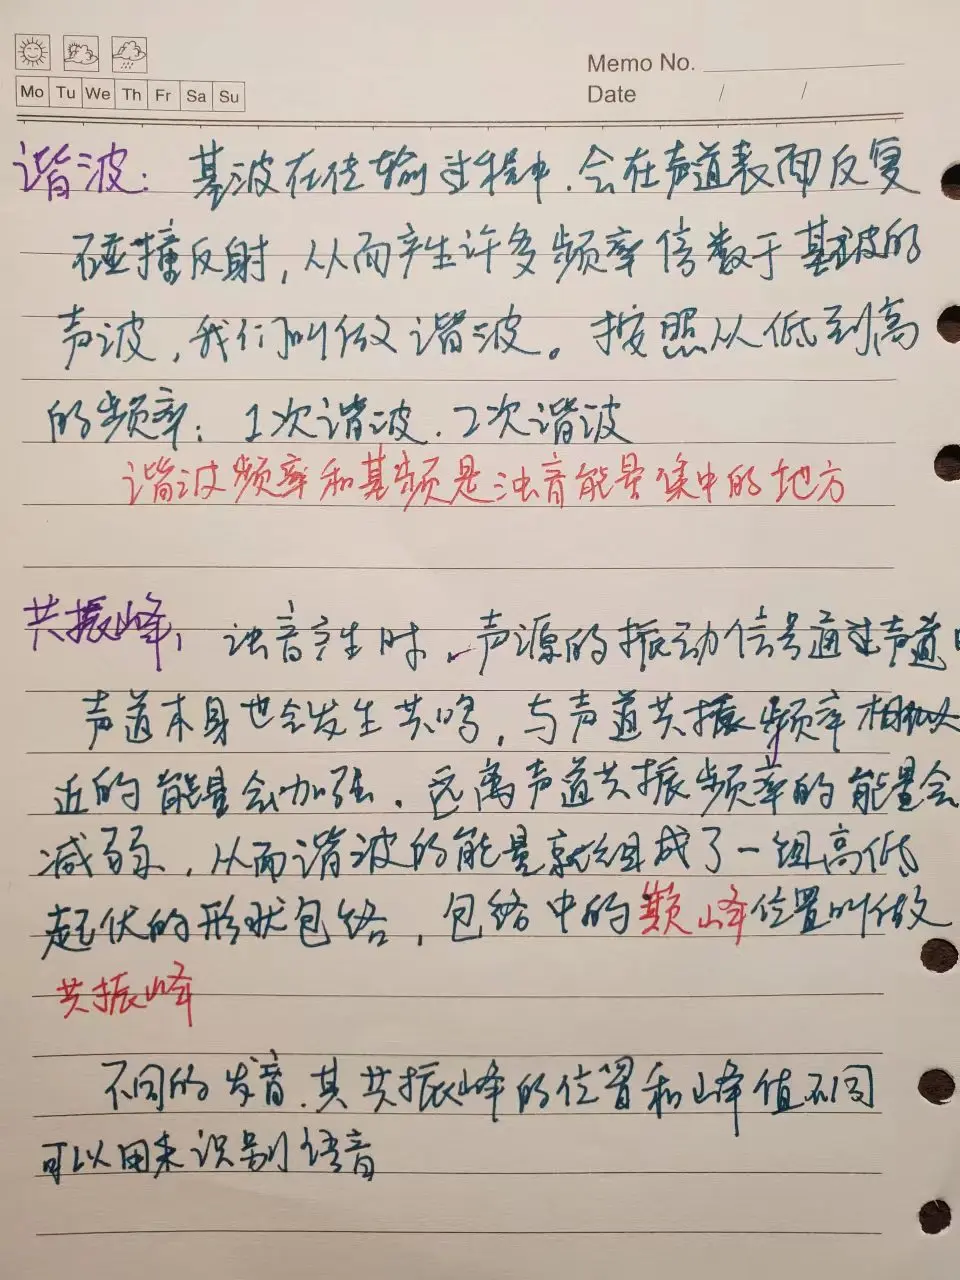 Memo No.
Date / /
Mo Tu We Th Fr Sa Su
谐波：基波在传输过程中，会在声道表面反复
碰撞反射，从而产生许多频率倍数于基波的
声波，我们叫做谐波。按照从低到高
的频率：1次谐波、2次谐波
谐波频率和基频是浊音能量集中的地方
共振峰：浊音产生时，声源的振动信号通过声道时
声道本身也会发生共鸣，与声道共振频率相似
近的能量会加强，远离声道共振频率的能量会
减弱，从而谐波的能量就组成了一组高低
起伏的形状包络，包络中的巅峰位置叫做
共振峰
不同的发音，其共振峰的位置和峰值不同
可以用来识别语音